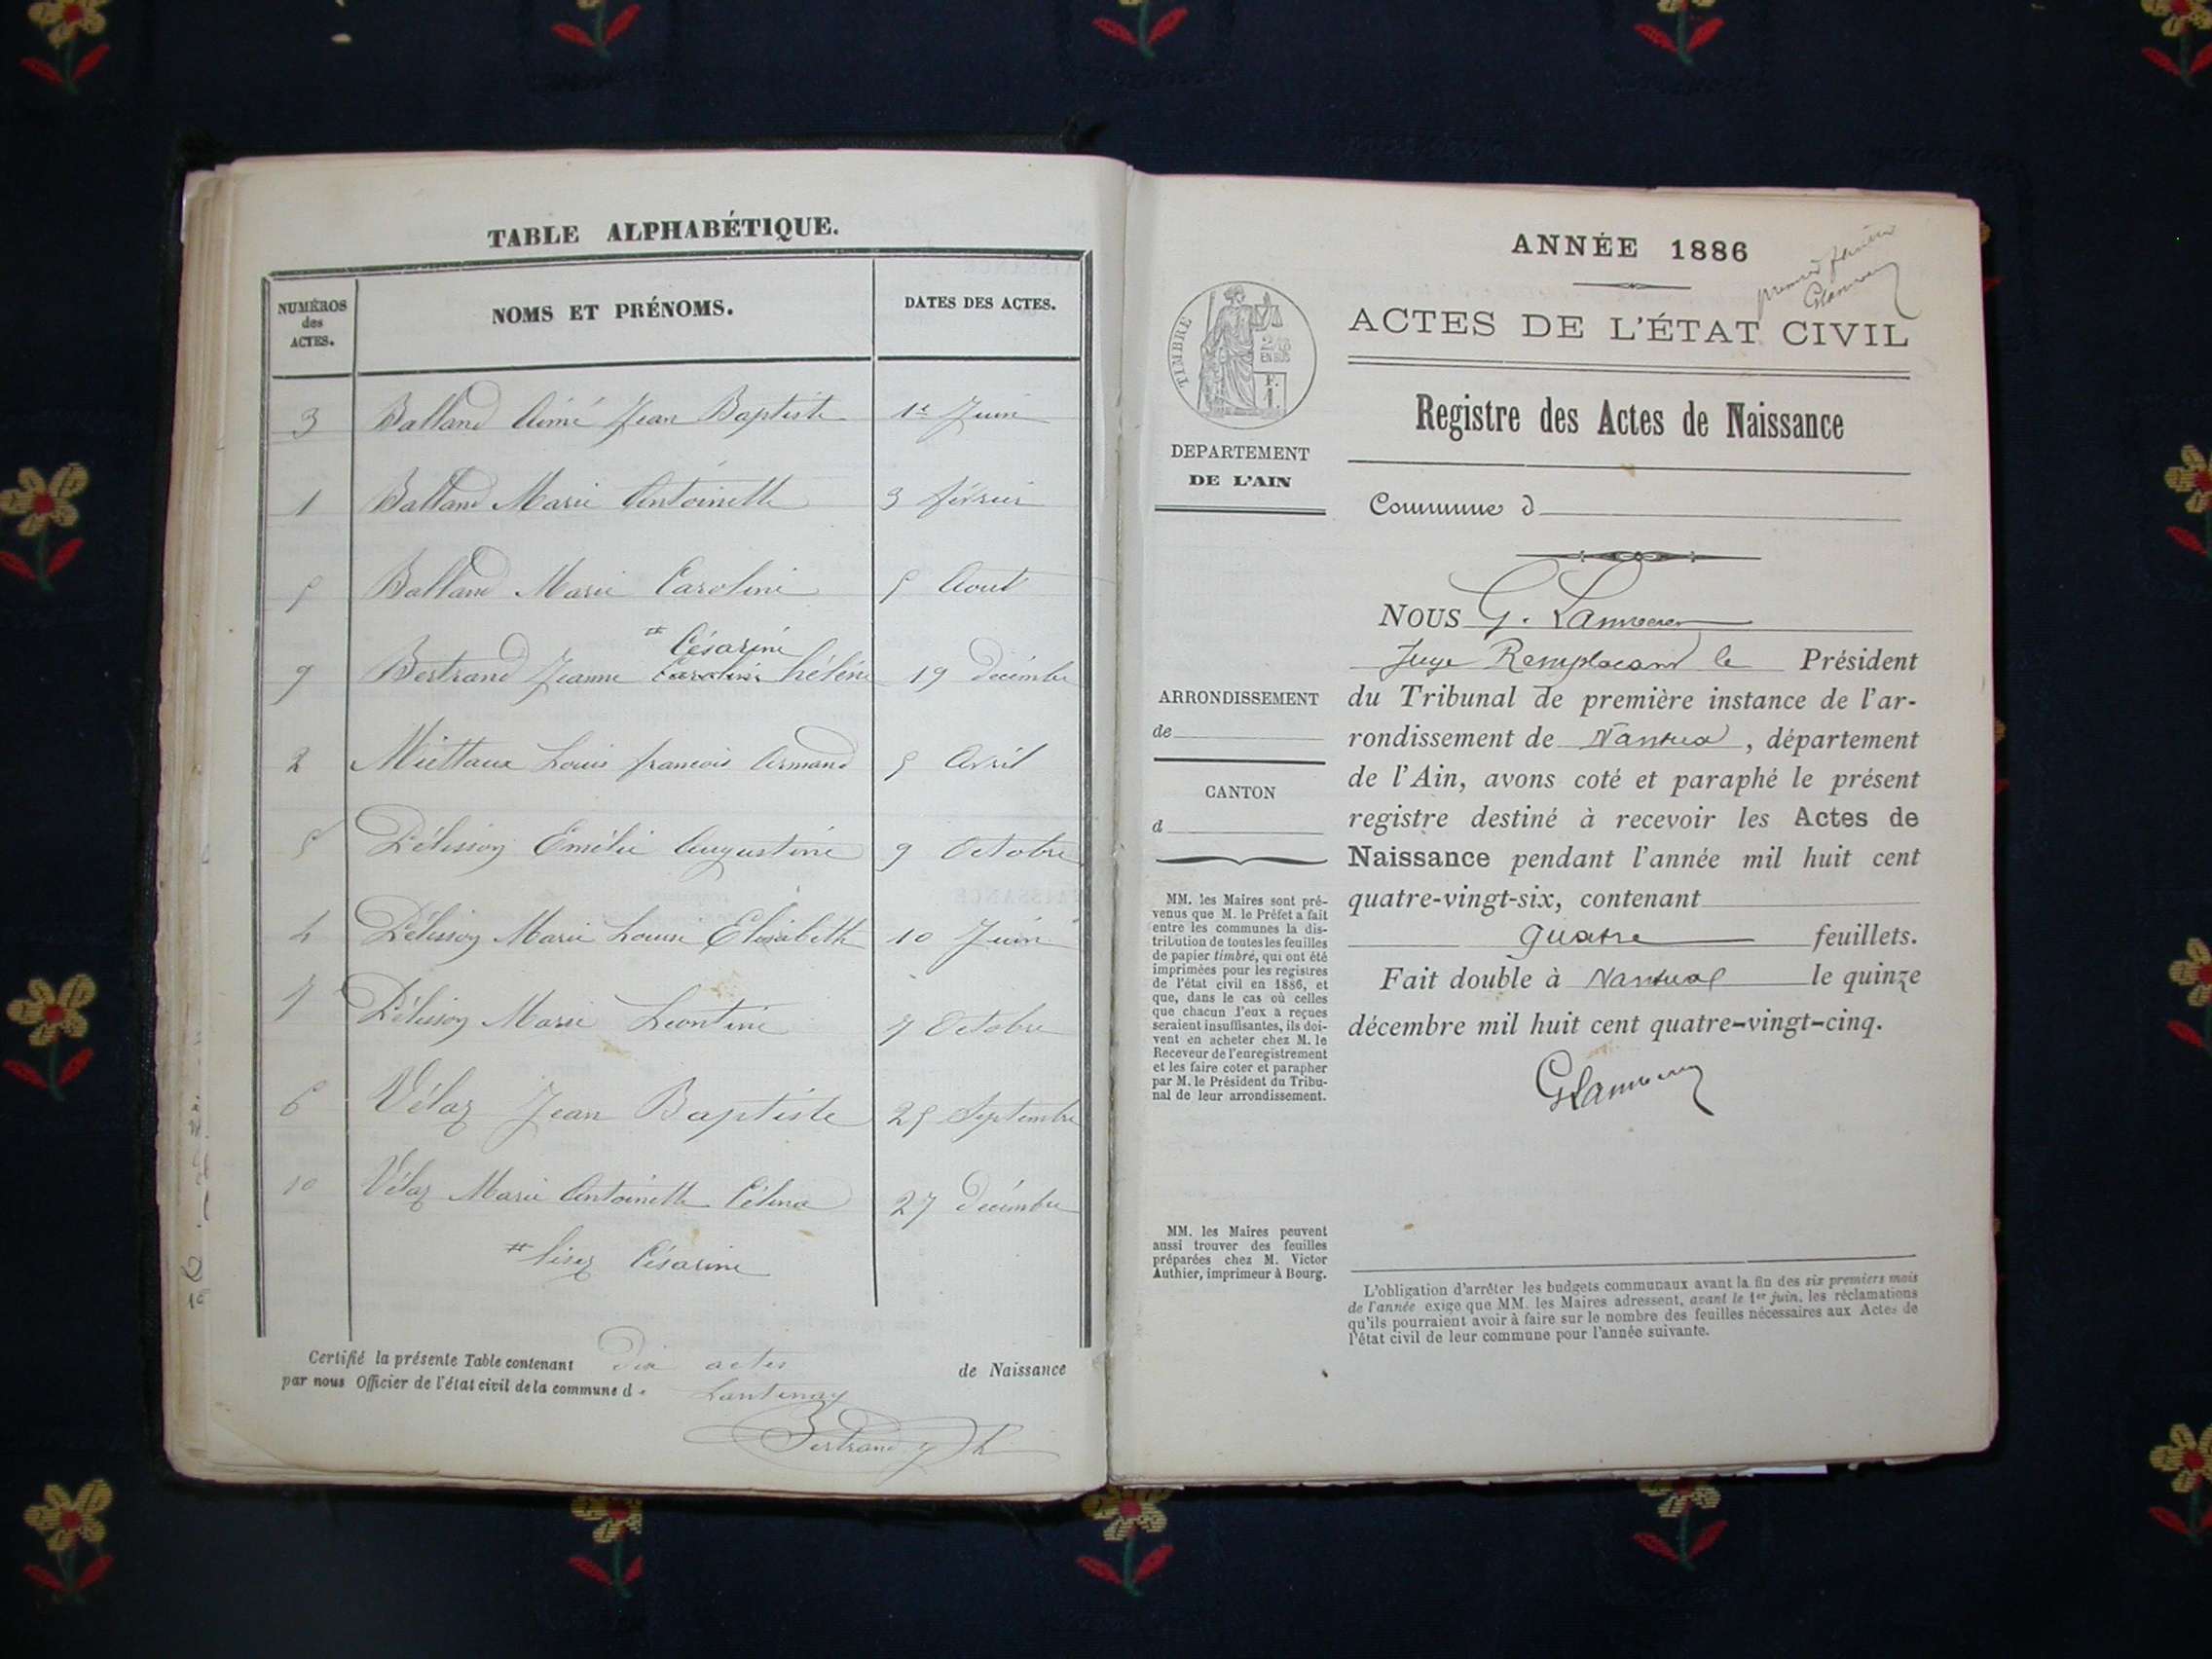 TABLE ALPHABÉTIQUE.
NUMÉROS
des
ACTES.
NOMS ET PRÉNOMS.
DATES DES ACTES.
3 Balland Aimé Jean Baptiste 1er Juin
1 Balland Marie Antoinette 3 février
5 Balland Marie Caroline 5 Aout
# Césarine
9 Bertrand Jeanne Caroline hélène 19 Décembre
2 Miettaux Louis françois Armand 5 Avril
Pélisson Emélie Augustine 9 Octobre
4 Pélisson Marie Louise Elisabeth 10 Juin
7 Pélisson Marie Léontine 7 Octobre
6 Vélaz Jean Baptiste 25 Septembre
10 Vélaz Marie Antoinette Célina 27 Décembre
# lisez Césarine
Certifié la présente Table contenant dix actes de Naissance
par nous Officier de l'état civil de la commune d. Lantenay
Bertrand
ANNÉE 1886
premier
TIMBRE
2/10
EN SUS
F.
1.
DEPARTEMENT
DE L'AIN
ARRONDISSEMENT
de
CANTON
d
MM. les Maires sont pré-
venus que M. le Préfet a fait
entre les communes la dis-
tribution de toutes les feuilles
de papier timbré, qui ont été
imprimées pour les registres
de l'état civil en 1886, et
que, dans le cas où celles
que chacun d'eux a reçues
seraient insuffisantes, ils doi-
vent en acheter chez M. le
Receveur de l'enregistrement
et les faire coter et parapher
par M. le Président du Tribu-
nal de leur arrondissement.
MM. les Maires peuvent
aussi trouver des feuilles
préparées chez M. Victor
Authier, imprimeur à Bourg.
ACTES DE L'ÉTAT CIVIL
Registre des Actes de Naissance
Commune d
NOUS G.
Juge Remplacant le Président
du Tribunal de première instance de l'ar-
rondissement de Nantua, département
de l'Ain, avons coté et paraphé le présent
registre destiné à recevoir les Actes de
Naissance pendant l'année mil huit cent
quatre-vingt-six, contenant
quatre feuillets.
Fait double à Nantua le quinze
décembre mil huit cent quatre-vingt-cinq.
L'obligation d'arrêter les budgets communaux avant la fin des six premiers mois
de l'année exige que MM. les Maires adressent, avant le 1er juin, les réclamations
qu'ils pourraient avoir à faire sur le nombre des feuilles nécessaires aux Actes de
l'état civil de leur commune pour l'année suivante.